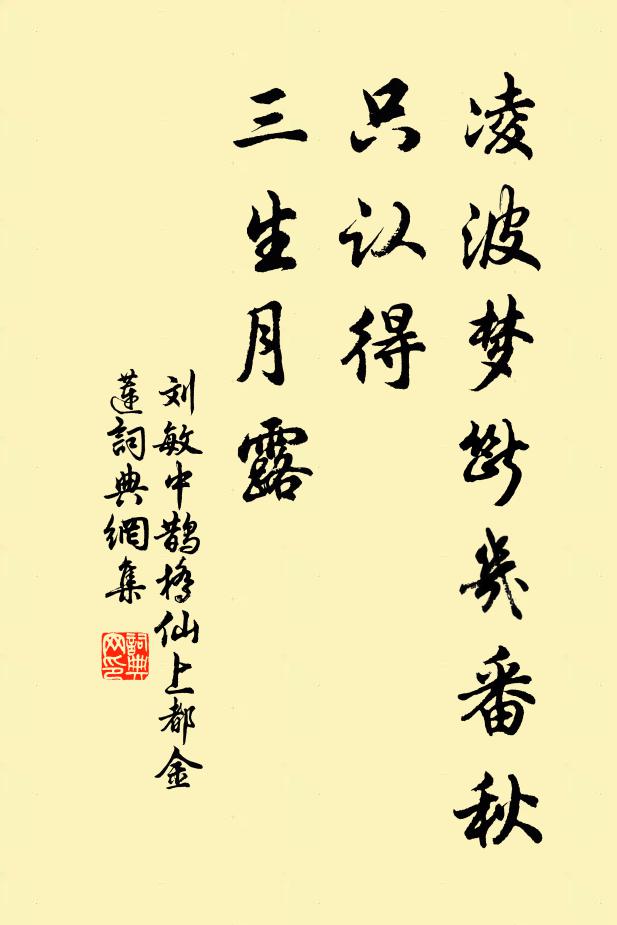 凌波梦断几番秋
只认得
三生月露
刘敏中鹊桥仙上都金
莲詞典網集
詞典
网印